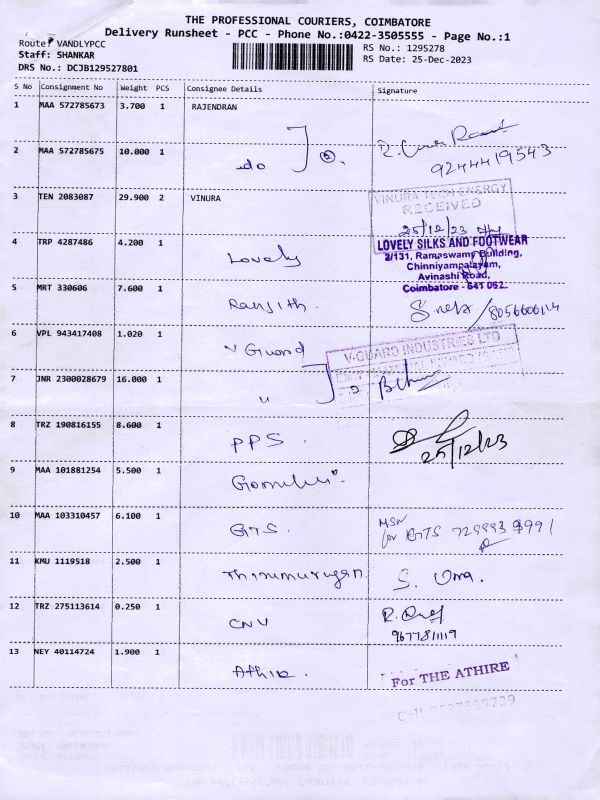 THE PROFESSIONAL COURIERS, COIMBATORE
Delivery Runsheet - PCC - Phone No.:0422-3505555 - Page No.:1
Route: VANDLYPCC
Staff: SHANKAR
DRS No.: DCJB129527801
RS No.: 1295278
RS Date: 25-Dec-2023
S No Consignment No Weight PCS Consignee Details Signature
1 MAA 572785673 3.700 1 RAJENDRAN
2 MAA 572785675 10.000 1 do 2. 9244419543
3 TEN 2083087 29.900 2 VINURA
VINURA TECH ENERGY
RECEIVED
25/12/23
4 TRP 4287486 4.200 1 Lovely
LOVELY SILKS AND FOOTWEAR
2/131, Ramaswamy Building,
Chinniyampalayam,
Avinashi Road,
Coimbatore - 641 062.
5 MRT 330606 7.600 1 Ranjith.
6 VPL 943417408 1.020 1 V Guard
V-GUARD INDUSTRIES LTD
7 JNR 2300028679 16.000 1 u 2
8 TRZ 190816155 8.600 1 PPS. 25/12/23
9 MAA 101881254 5.500 1
10 MAA 103310457 6.100 1 GTS. for GTS
11 KMU 1119518 2.500 1 Thirumurugan S. Uma.
12 TRZ 275113614 0.250 1 CNV 9677811119
13 NEY 40114724 1.900 1 Athire.
For THE ATHIRE